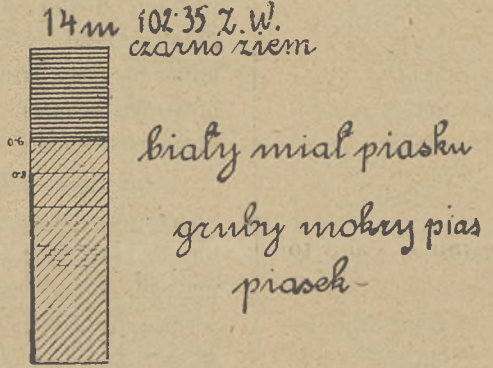 14m 102·35 Z.W.
czarno ziem
0·6
biały miał piasku
0·8
gruby mokry pias
piasek-